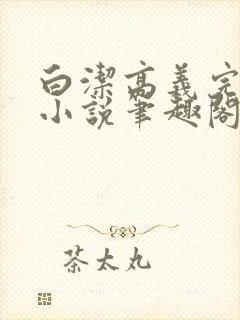 白潔高義完
小說筆趣閣
茶太丸